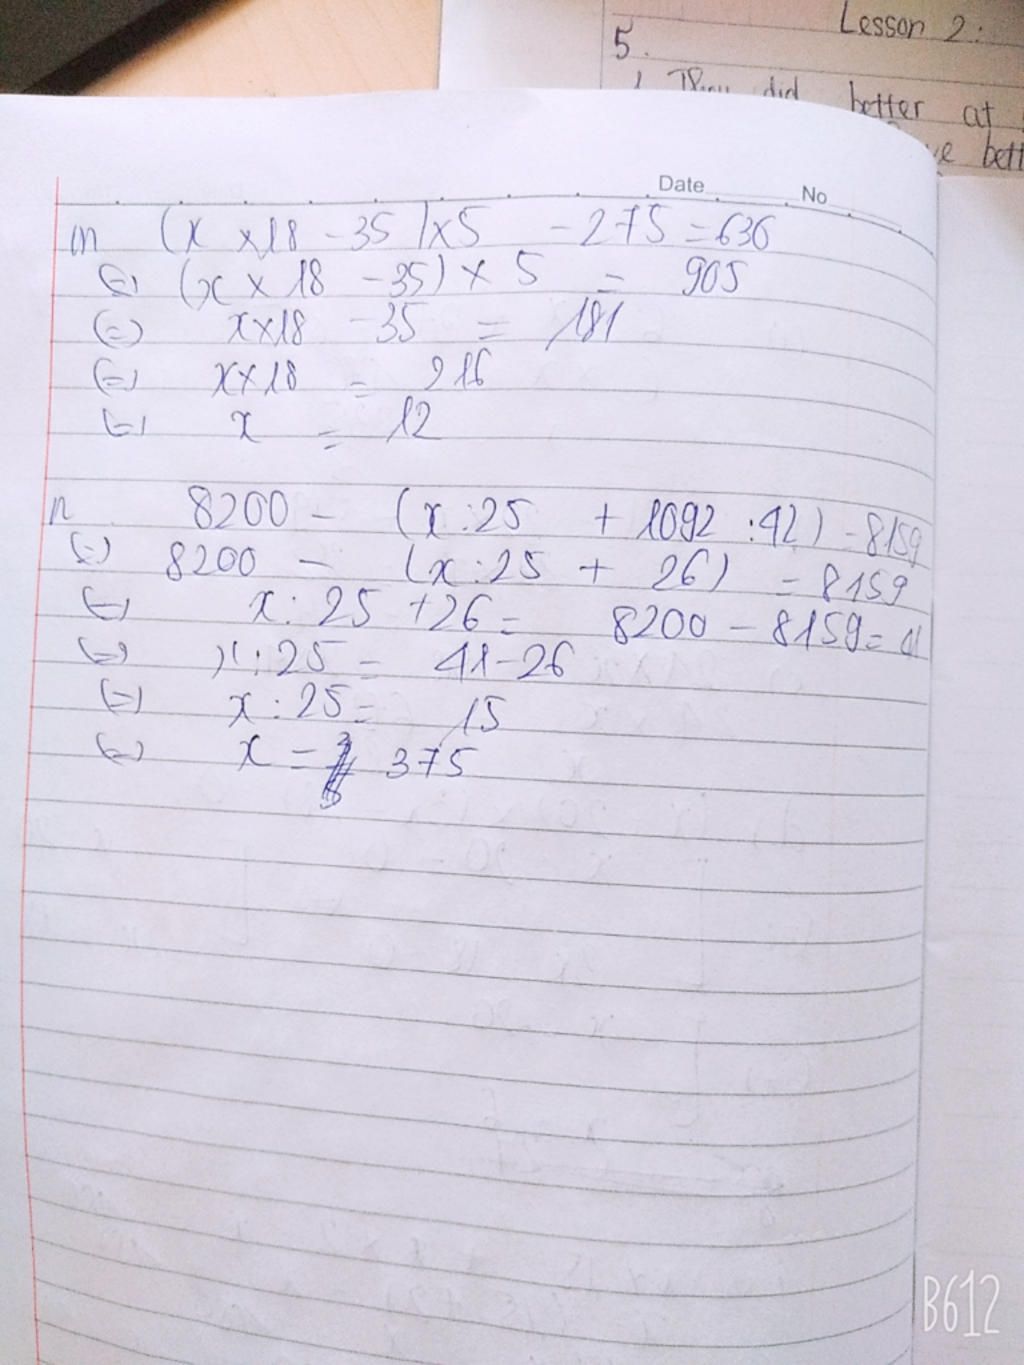 Lesson 2:
5.
1. They did better at
ve bett
Date No
m (x x18 - 35)x5 - 275 = 636
(=) (x x 18 - 35) x 5 = 905
(=) x x18 - 35 = 181
(=) x x 18 = 216
(=) x = 12
n 8200 - (x : 25 + 1092 : 42) = 8159
(=) 8200 - (x : 25 + 26) = 8159
(=) x : 25 + 26 = 8200 - 8159 = 41
(=) x : 25 = 41 - 26
(=) x : 25 = 15
(=) x = 375
B612